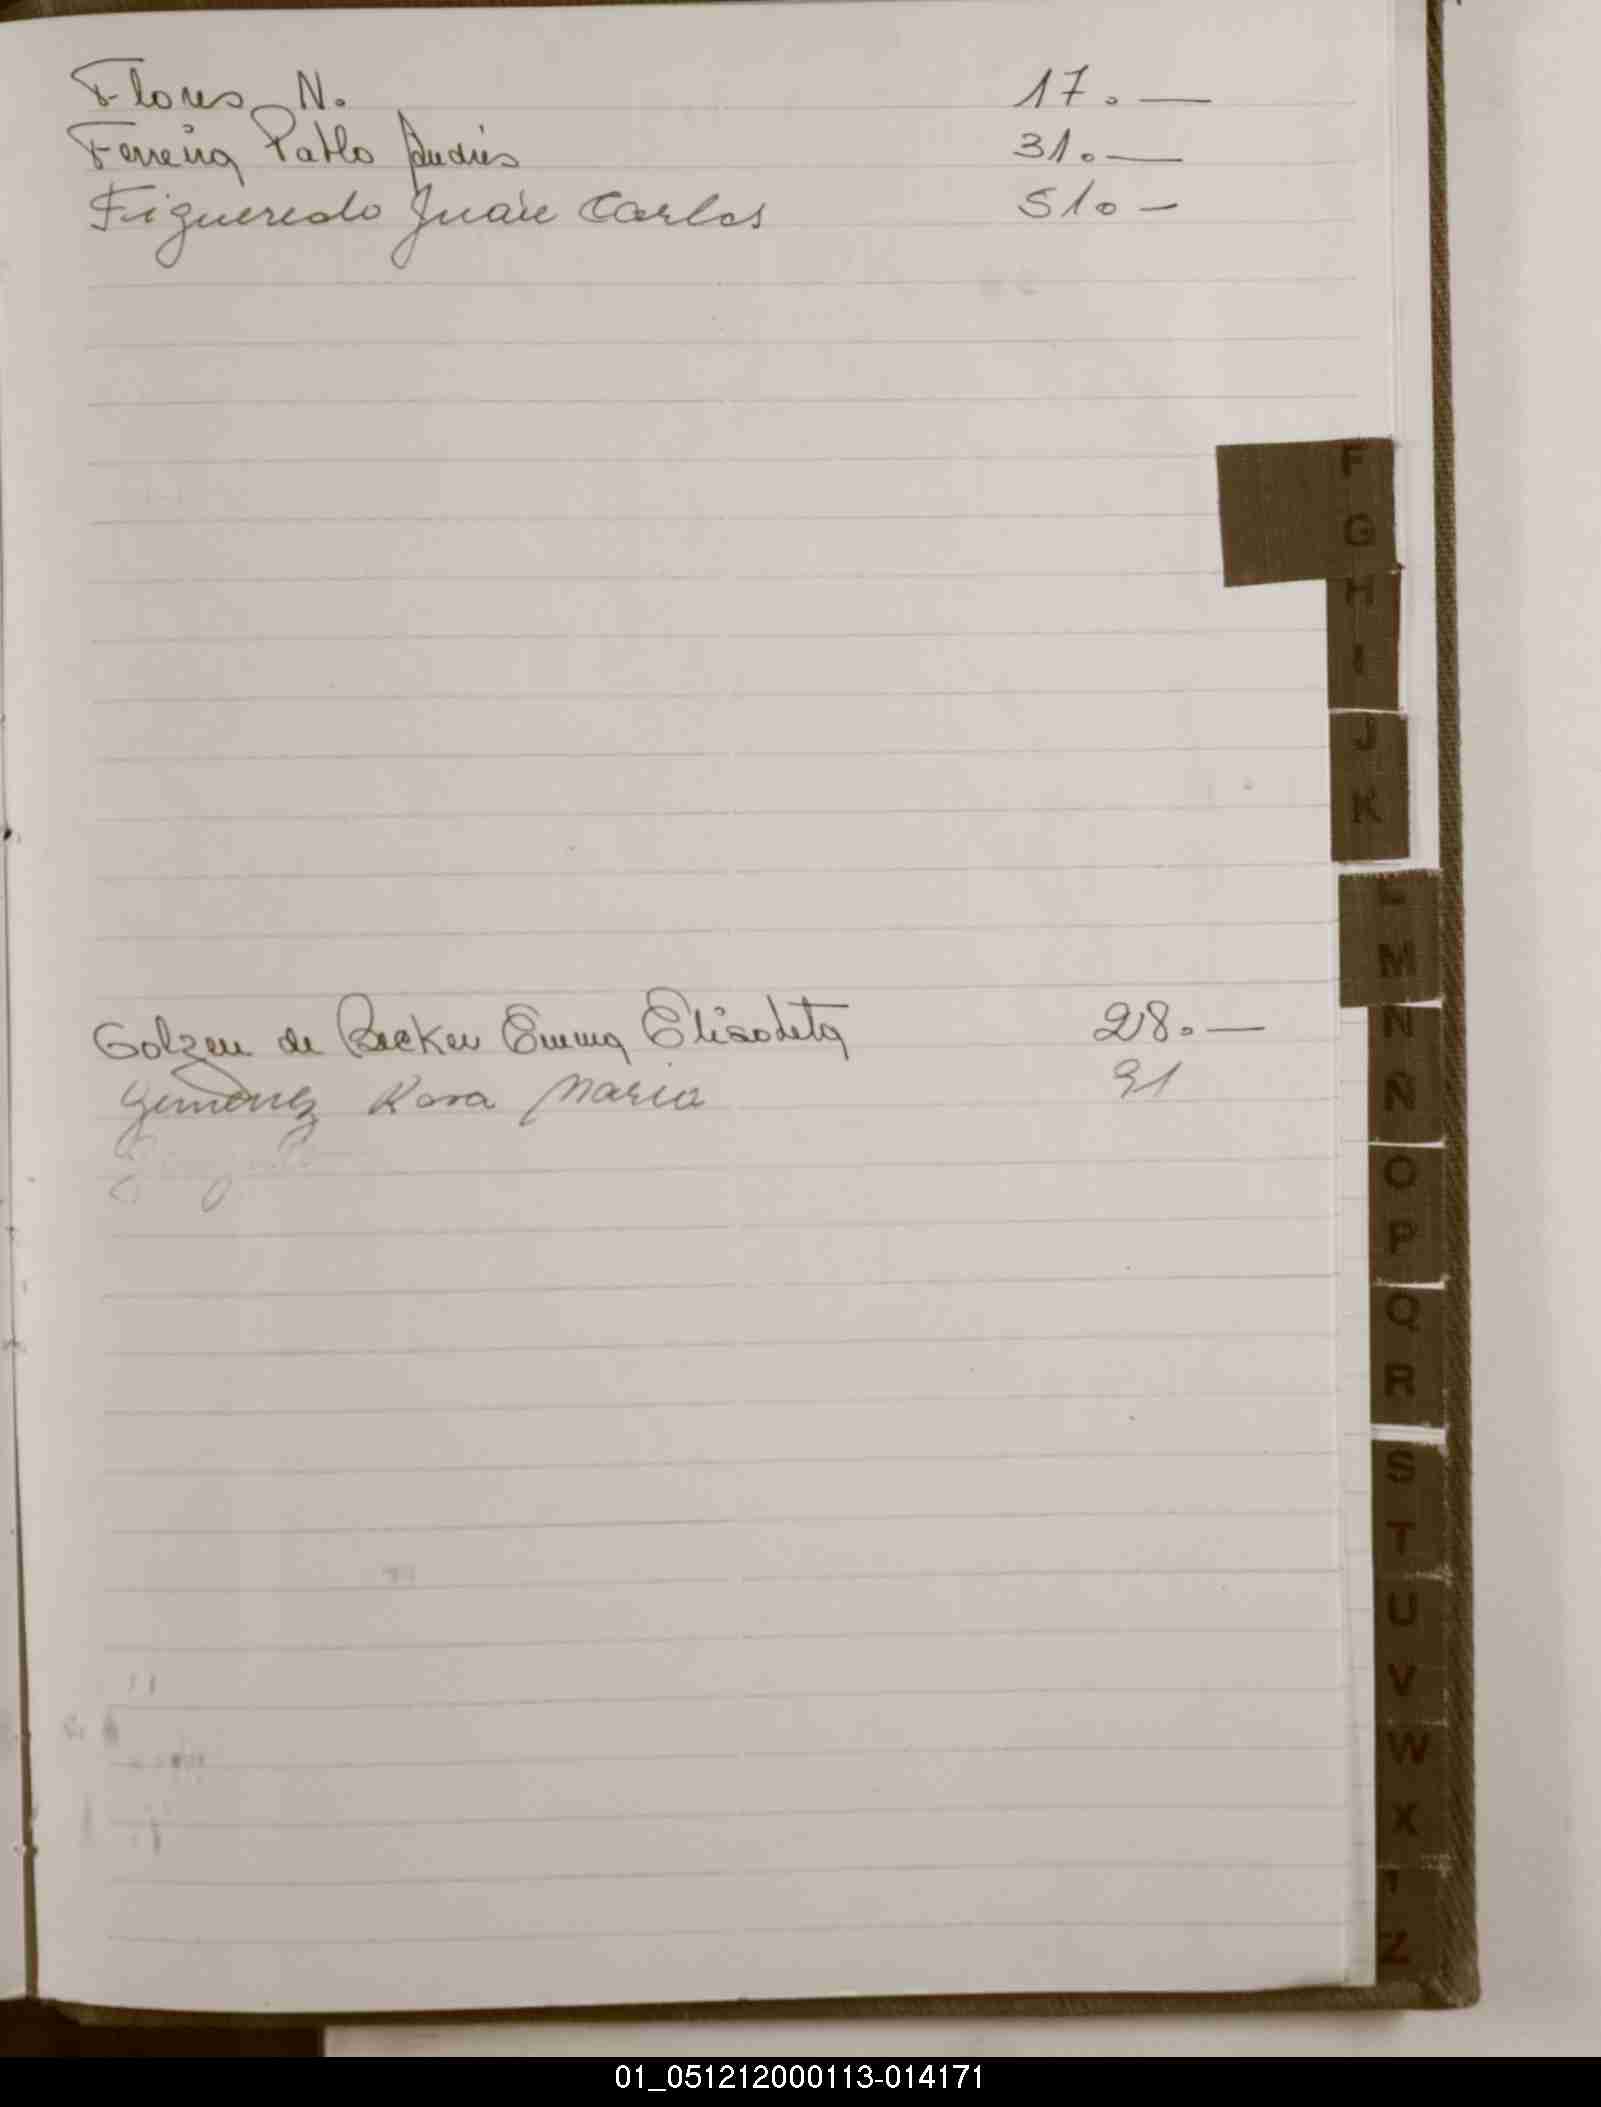 Flores N. 17.—
Ferreira Pablo Andrés 31.—
Figueredo Juan Carlos 51.—
F
G
H
I
J
K
L
M
Golzen de Becker Emma Elisabeta 28.—
Gimenez Rosa Maria 91
N
Ñ
O
P
Q
R
S
T
U
V
W
X
Y
Z
01_051212000113-014171